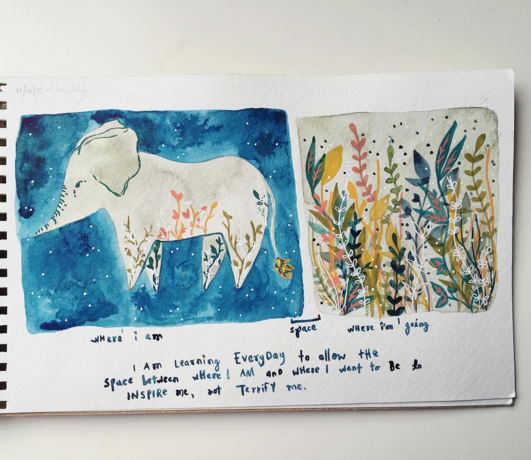 where i am
space
where i'm going
I AM learning EveryDay to allow tHe
space between wHere I AM and wHere I want to Be to
INSPIRE me, not Terrify me.